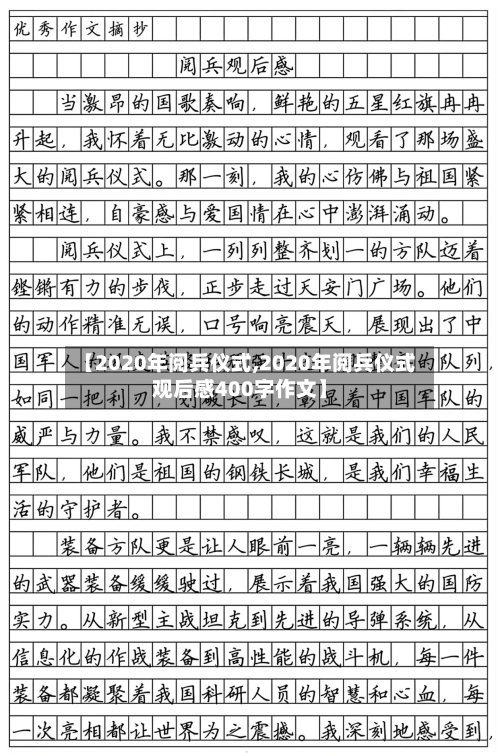 优秀作文摘抄
阅兵观后感
当激昂的国歌奏响，鲜艳的五星红旗冉冉
升起，我怀着无比激动的心情，观看了那场盛
大的阅兵仪式。那一刻，我的心仿佛与祖国紧
紧相连，自豪感与爱国情在心中澎湃涌动。
阅兵仪式上，一列列整齐划一的方队迈着
铿锵有力的步伐，正步走过天安门广场。他们
的动作精准无误，口号响亮震天，展现出了中
国军人
的队列，
【2020年阅兵仪式,2020年阅兵仪式
观后感400字作文】
如同一把利刃
彰显着中国军队的
威严与力量。我不禁感叹，这就是我们的人民
军队，他们是祖国的钢铁长城，是我们幸福生
活的守护者。
装备方队更是让人眼前一亮，一辆辆先进
的武器装备缓缓驶过，展示着我国强大的国防
实力。从新型主战坦克到先进的导弹系统，从
信息化的作战装备到高性能的战斗机，每一件
装备都凝聚着我国科研人员的智慧和心血，每
一次亮相都让世界为之震撼。我深刻地感受到，